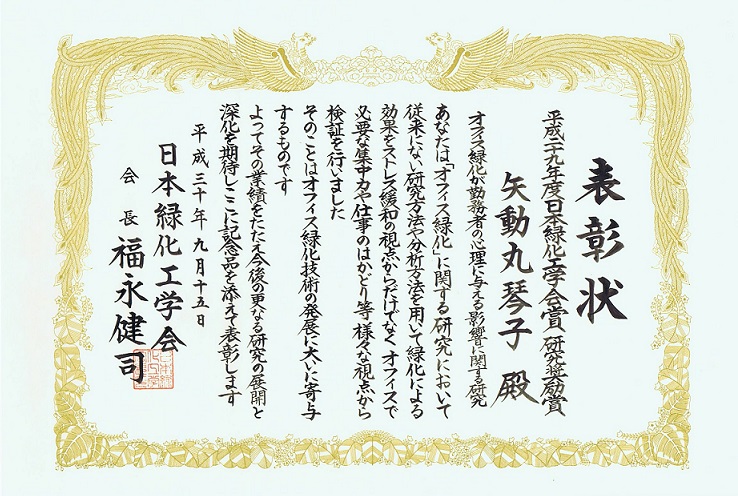 表彰状
平成二九年度日本緑化工学会賞 研究奨励賞
矢動丸琴子 殿
オフィス緑化が勤務者の心理に与える影響に関する研究
あなたは「オフィス緑化」に関する研究において
従来にない研究方法や分析方法を用いて緑化による
効果をストレス緩和の視点からだけでなくオフィスで
必要な集中力や仕事のはかどり等様々な視点から
検証を行いました
そのことはオフィス緑化技術の発展に大いに寄与
するものです
よってその業績をたたえ今後の更なる研究の展開と
深化を期待しここに記念品を添えて表彰します
平成三十年九月十五日
日本緑化工学会
会長 福永健司